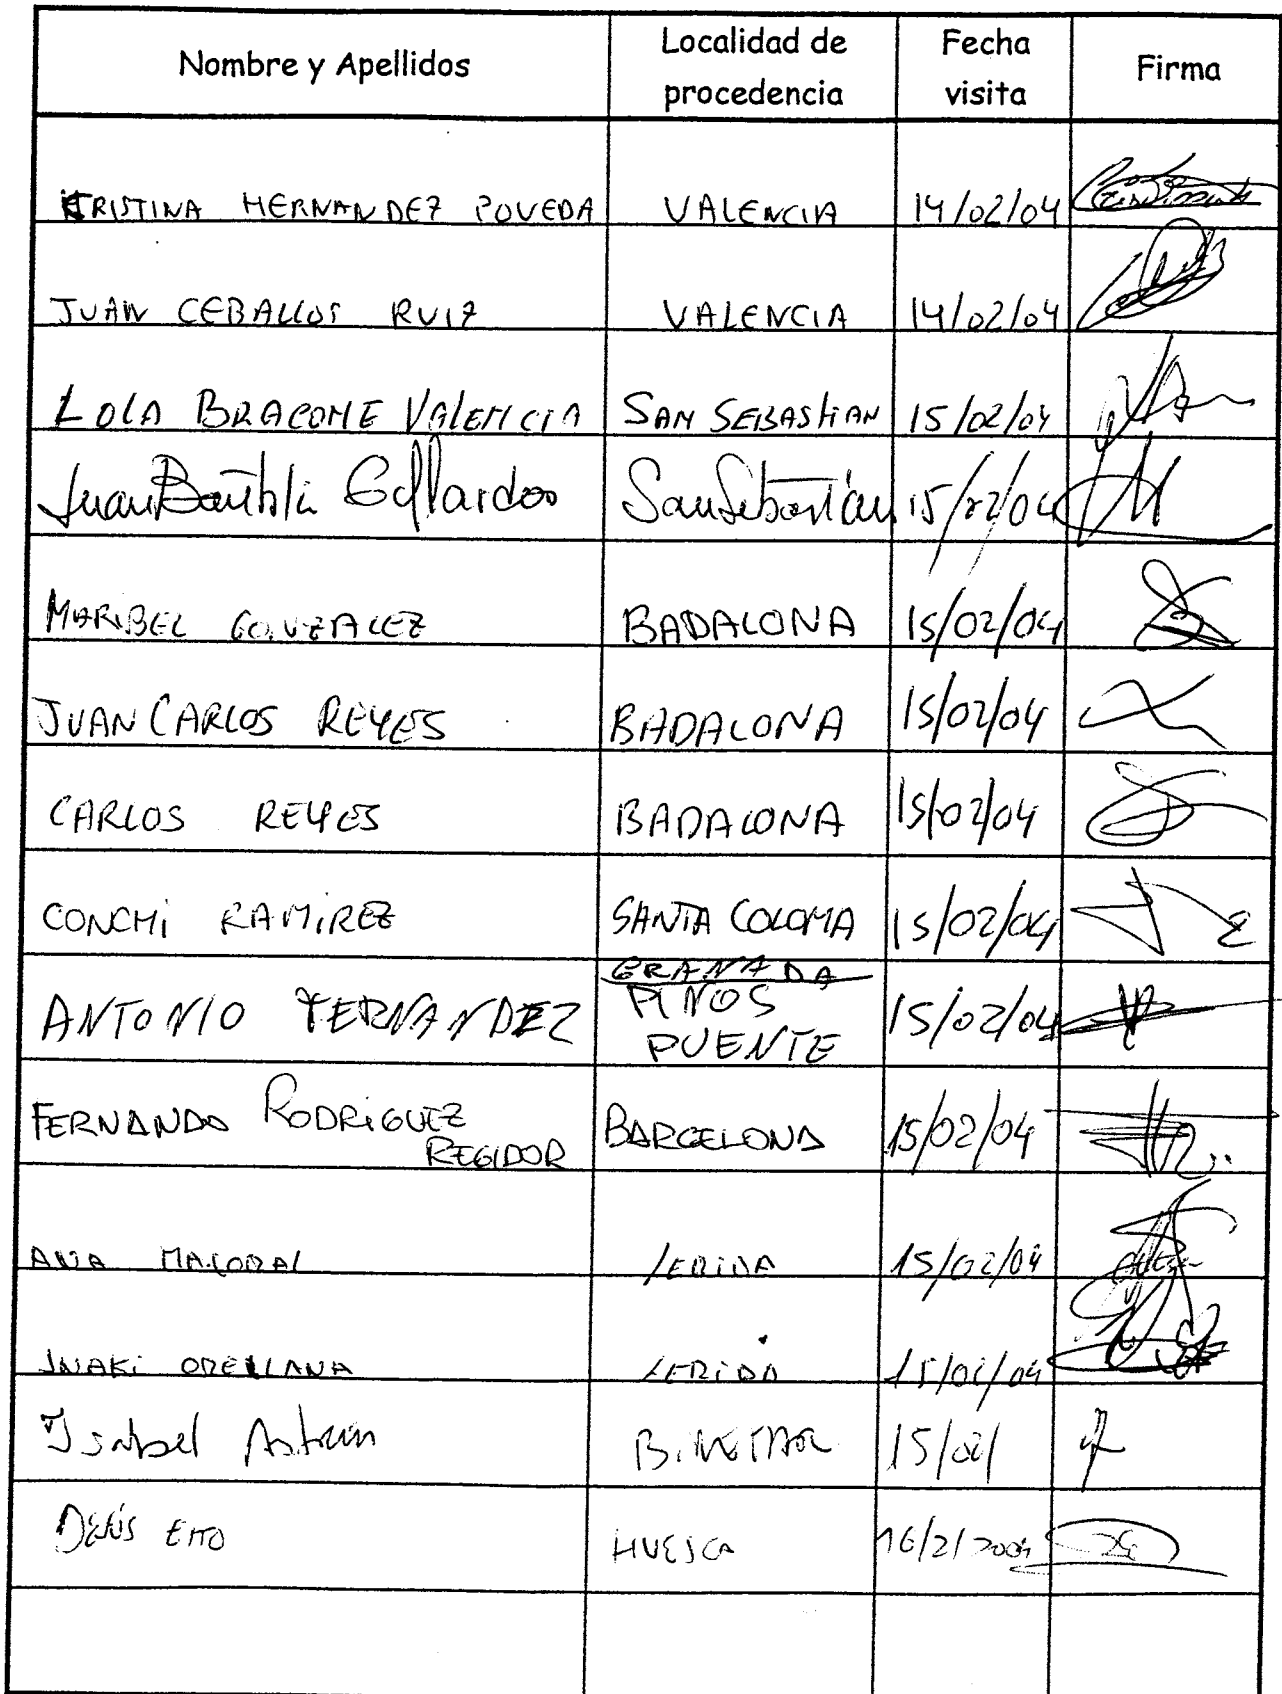 Nombre y Apellidos Localidad de procedencia Fecha visita Firma
KRISTINA HERNANDEZ POVEDA VALENCIA 14/02/04
JUAN CEBALLOS RUIZ VALENCIA 14/02/04
LOLA BRACONE VALENCIA SAN SEBASTIAN 15/02/04
Juan Bautista Gallardo San Sebastián 15/02/04
MARIBEL GONZALEZ BADALONA 15/02/04
JUAN CARLOS REYES BADALONA 15/02/04
CARLOS REYES BADALONA 15/02/04
CONCHI RAMIREZ SANTA COLOMA 15/02/04
GRANADA
ANTONIO FERNANDEZ PINOS PUENTE 15/02/04
FERNANDO RODRIGUEZ REGIDOR BARCELONA 15/02/04
ANA LERIDA 15/02/04
IÑAKI ORELLANA LERIDA 15/02/04
Isabel BINEFAR 15/02/
HUESCA 16/2/2004